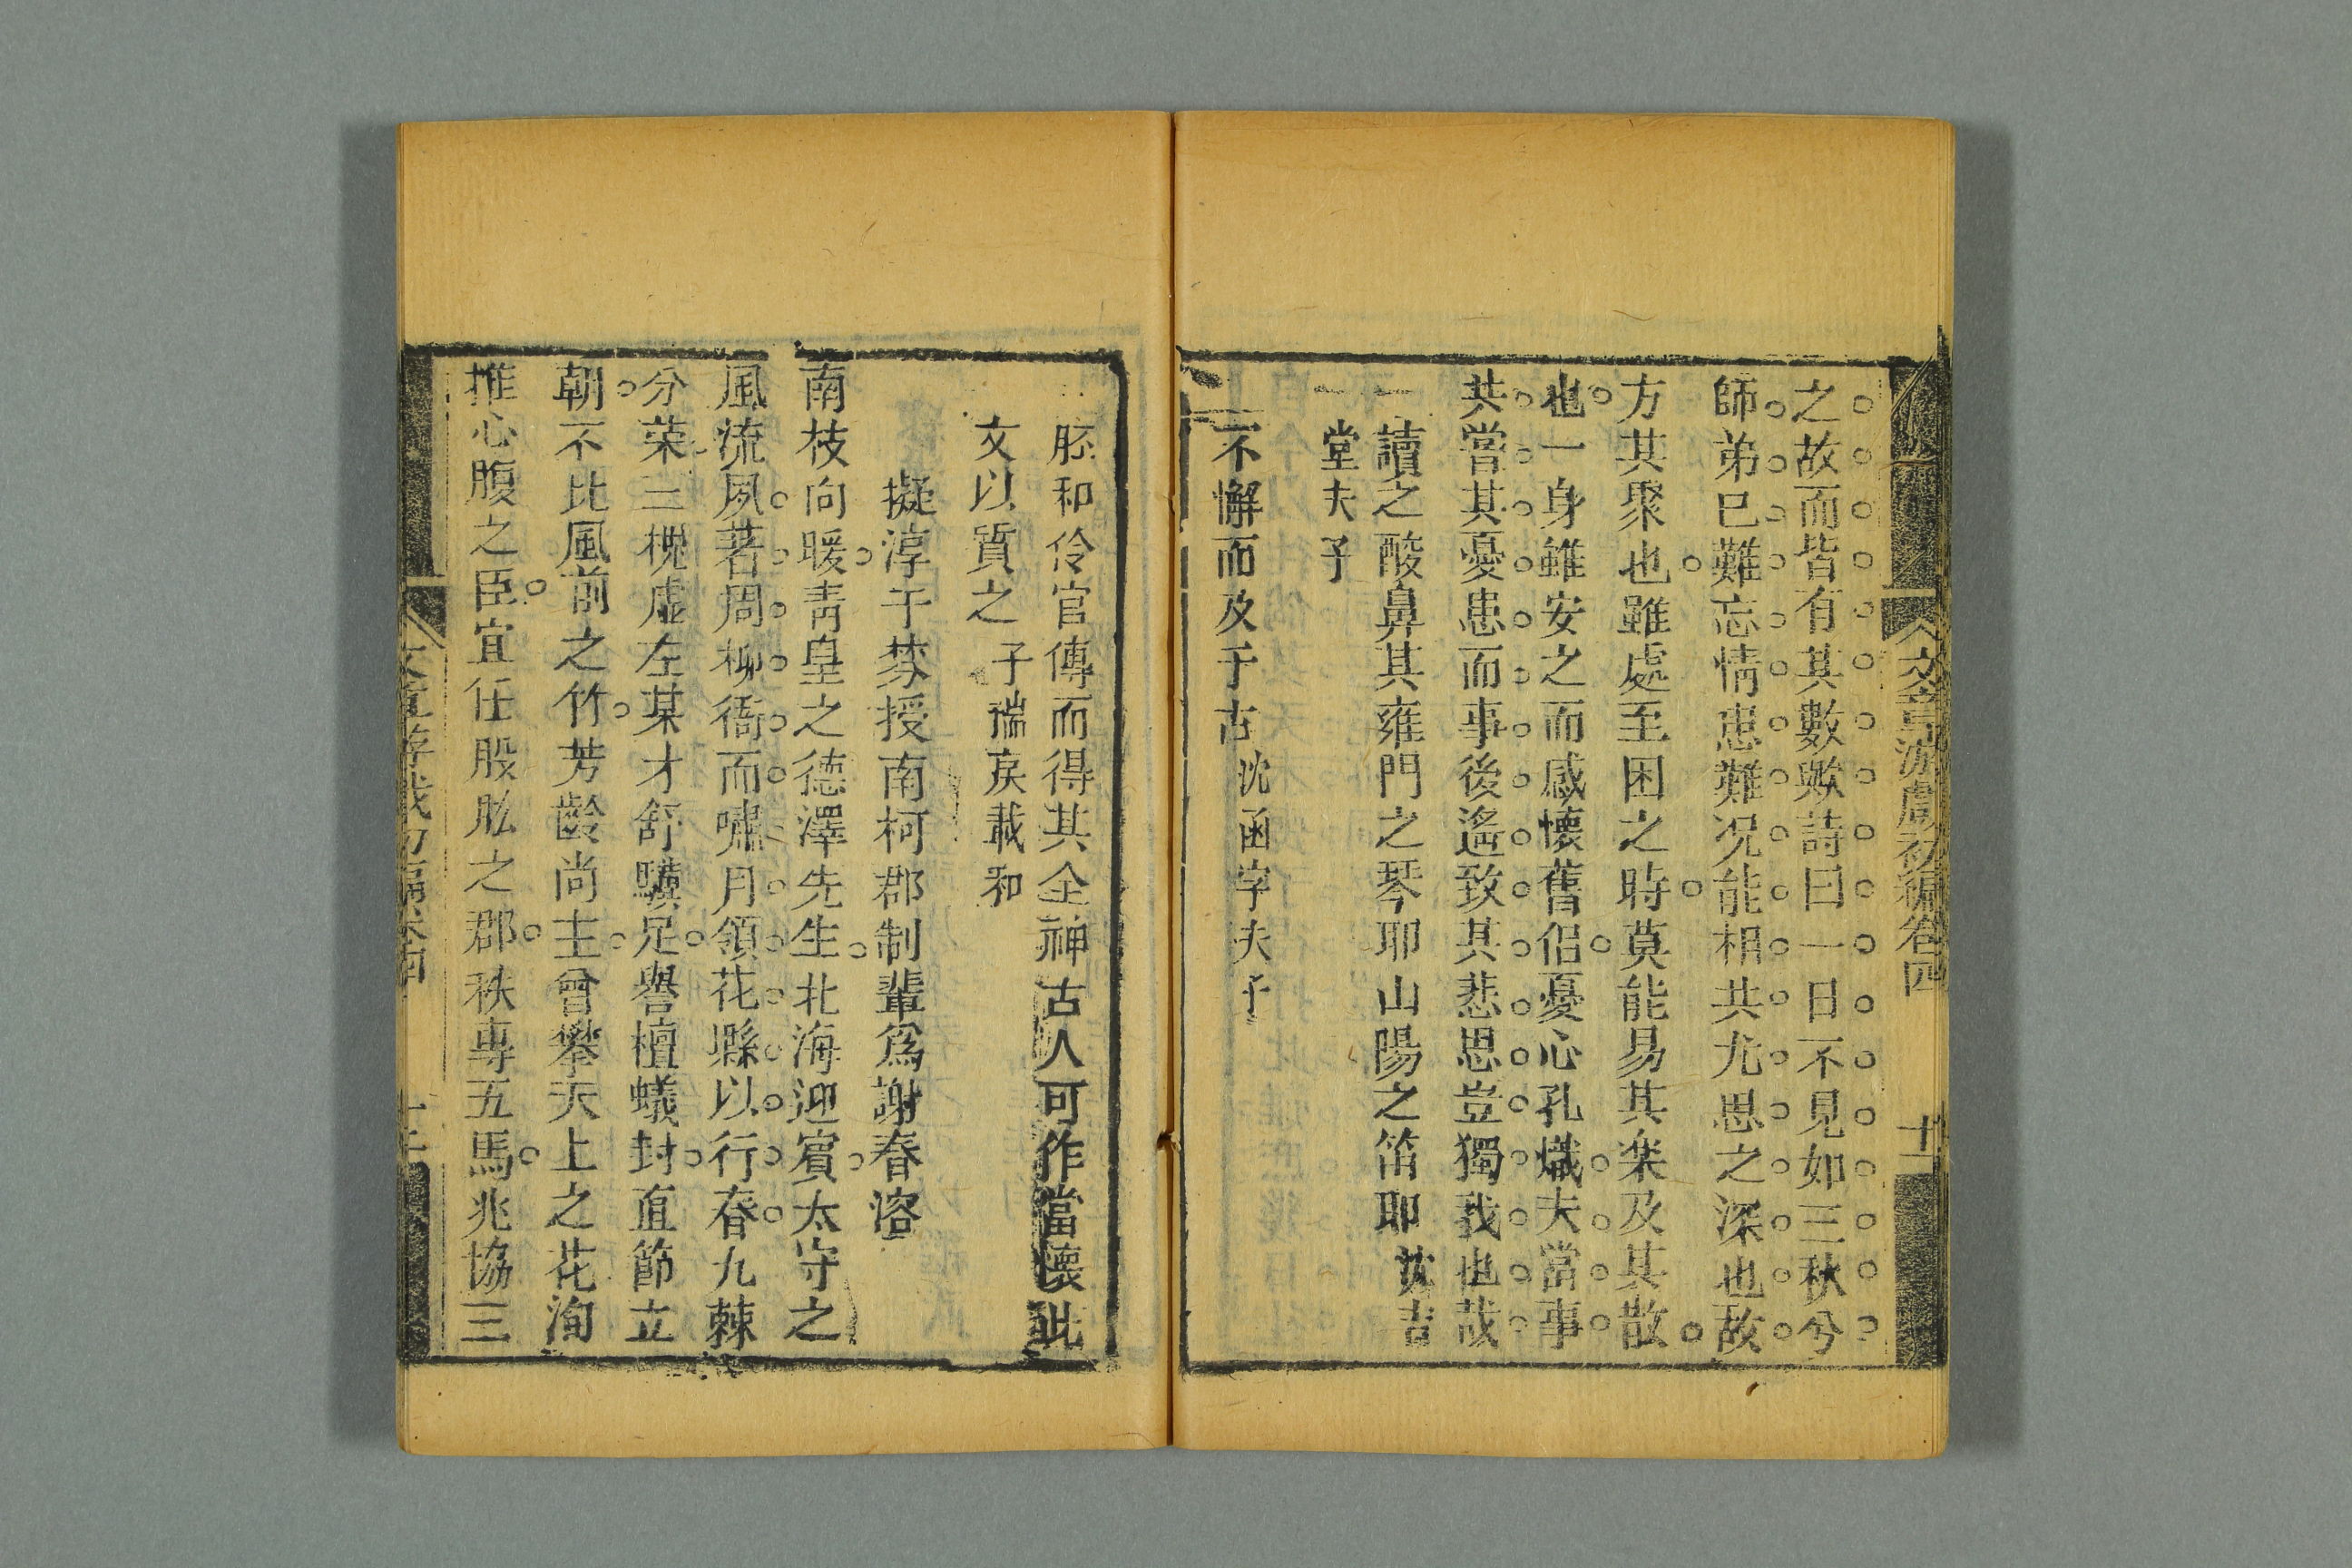 文章游戲初編卷四
十二
之故而皆有其數歟詩曰一日不見如三秋兮
師弟已難忘情患難况能相共尤思之深也故
方其聚也雖處至困之時莫能易其楽及其散
也一身雖安之而感懷舊侶憂心孔熾夫當事
共嘗其憂患而事後遙致其悲思豈獨我也哉
讀之酸鼻其雍門之琴耶山陽之笛耶 沈吉
堂夫子
不懈而及于古 沈函字夫子
胚和伶官傳而得其全神古人可作當懷此
文以質之 子瑞矦載和
擬淳于棼授南柯郡制輩為謝春溶
南枝向暖青皇之德澤先生北海迎賓太守之
風流夙著周柳衙而嘯月領花縣以行春九棘
分榮三槐虛左某才舒驥足譽檀蟻封直節立
朝不比風前之竹芳齡尚主曾攀天上之花洵
推心腹之臣宜任股肱之郡秩專五馬兆協三
文章游戲初編卷四